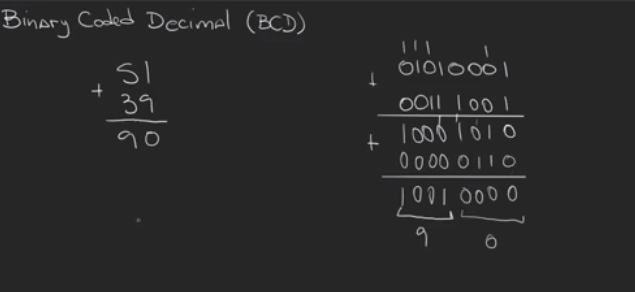 Binary Coded Decimal (BCD)
51
+ 39
90
111 1
+ 01010001
0011 1001
+ 1000 1010
0000 0110
1001 0000
9 0